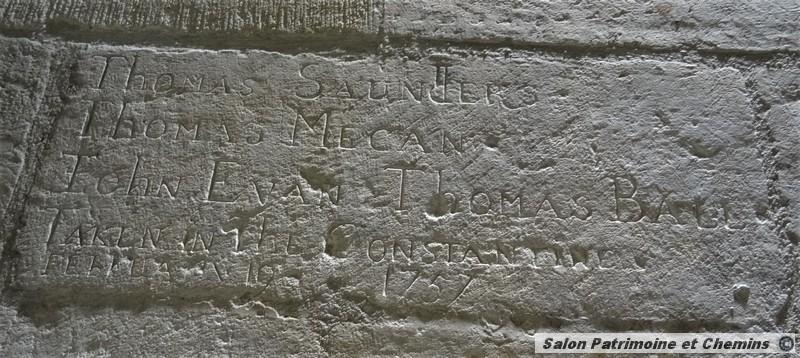 Thomas Saunders
Thomas Mecan
John Evan Thomas Ball
Taken in the Constantine
19 1757
Salon Patrimoine et Chemins ©